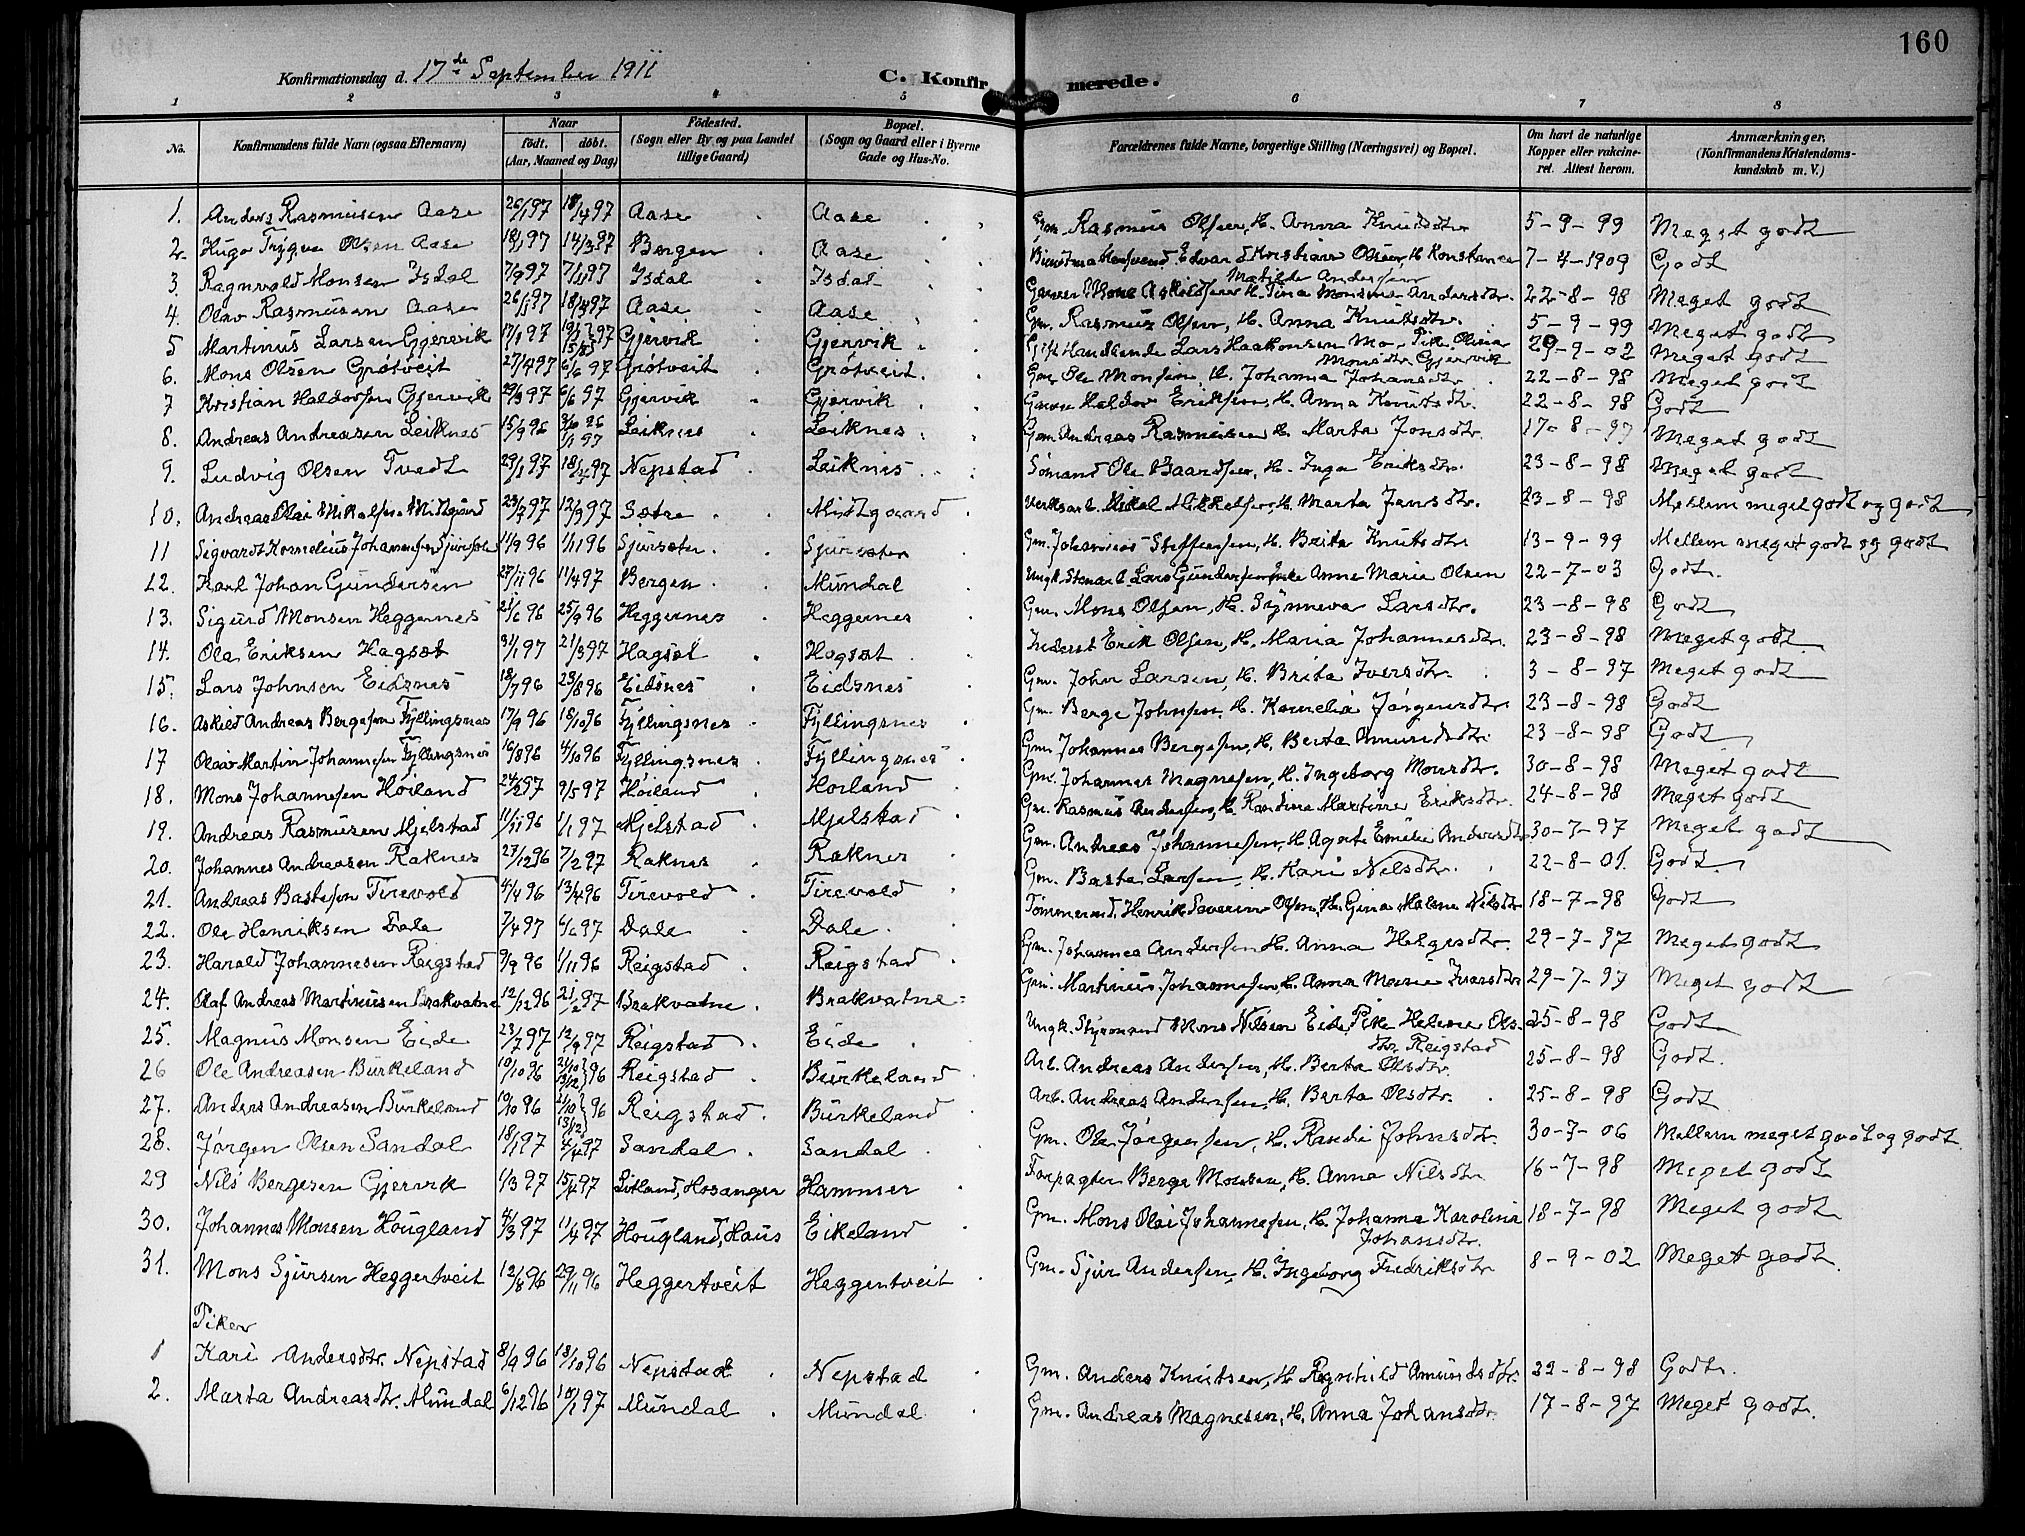 160
Konfirmationsdag d. 17de September 1911 C. Konfirmerede.
1 2 3 4 5 6 7 8
No. Konfirmandens fulde Navn (ogsaa Efternavn) Naar født. døbt. (Aar, Maaned og Dag) Fødested. (Sogn eller By og paa Landet tillige Gaard) Bopæl. (Sogn og Gaard eller i Byerne Gade og Hus-No. Forældrenes fulde Navne, borgerlige Stilling (Næringsvei) og Bopæl. Om havt de naturlige Kopper eller vakcineret. Attest herom. Anmærkninger. (Konfirmandens Kristendomskundskab m. V.)
1. Anders Rasmusen Aase 26/1 97 18/4 97 Aase Aase Gm. Rasmus Olsen, H. Anna Knutsdtr. 5-9-99 Meget godt
2. Hugo Trygve Olsen Aase 97 14/3 97 Bergen Aase Edvard Kristian Olsen, H. Konstance Matilde Andersen 7-4-1909 Godt
3. Ragnvald Monsen Isdal 7/9 97 7/11 97 Isdal Isdal Mons H. Tina Monsine Andersdtr. 22-8-98 Meget godt
4. Olav Rasmusen Aase 26/1 97 18/4 97 Aase Aase Gm. Rasmus Olsen, H. Anna Knutsdtr. 5-9-99 Meget godt
5 Martinus Larsen Gjervik 17/1 97 97 Gjervik Gjervik Lars Haakonsen Mo, Pike Olivia Monsdtr. Gjervik 29-9-02 Meget godt
6. Mons Olsen Grøtveit 27/4 97 6/6 97 Grøtveit Grøtveit Gm. Ole Monsen, H. Johanna Johansdtr. 22-8-98 Meget godt
7 Kristian Haldorsen Gjervik 29/3 97 6/6 97 Gjervik Gjervik Haldor Eriksen, H. Anna Knutsdtr. 22-8-98 Godt
8. Andreas Andreasen Leiknes 15/9 96 1/1 97 Leiknes Leiknes Gm. Andreas Rasmusen H. Marta Jonsdtr. 17-8-97 Meget godt
9. Ludvig Olsen Tvedt 29/1 97 18/4 97 Nepstad Leiknes Sømand Ole Baardsen, H. Inga Eriksdtr. 23-8-98 Meget godt
10. Andreas Olai Mikalsen Midtgård 23/2 97 12/3 97 Sætre Midtgaard Mikal Mikkelsen, H. Marta Jansdtr. 23-8-98 Mellem meget godt og godt
11 Sigvardt Kornelius Johannesen Sjursæter 11/9 96 1/11 96 Sjursæter Sjursæter Gm. Johannes Steffensen, H. Brita Knutsdtr. 13-9-99 Mellem meget godt og godt
12. Karl Johan Gundersen 27/11 96 11/4 97 Bergen Mundal Ungk. Lars Gundersen, Pike Anne Marie Olsen 22-7-03 Godt.
13. Sigurd Monsen Heggernes 21/6 96 25/9 96 Heggernes Heggernes Gm. Mons Olsen, H. Synneva Larsdtr. 23-8-98 Godt
14. Ola Eriksen Hagsæt 31/1 97 21/3 97 Hagsæt Hagsæt Inderst Erik Olsen, H. Maria Johannesdtr. 23-8-98 Meget godt.
15. Lars Johnsen Eidsnes 18/7 96 23/8 96 Eidsnes Eidsnes Gm. John Larsen, H. Brita Iversdtr. 3-8-97 Meget godt
16. Askild Andreas Bergesen Fyllingsnes 17/9 96 18/10 96 Fyllingsnes Fyllingsnes Gm. Berge Johnsen, H. Kornelia Jørgensdtr. 23-8-98 Godt
17 Olaus Martin Johannesen Fyllingsnes 16/8 96 4/10 96 Fyllingsnes Fyllingsnes Gm. Johannes Bergesen, H. Berta Amundsdtr. 23-8-98 Godt
18. Mons Johannesen Høiland 24/2 97 9/5 97 Høiland Høiland Gm. Johannes Magnesen, H. Ingeborg Monsdtr. 30-8-98 Meget godt
19. Andreas Rasmusen Mjelstad 11/11 96 1/1 97 Mjelstad Mjelstad Gm. Rasmus Andersen, H. Randina Martine Eriksdtr. 24-8-98 Meget godt
20. Johannes Andreasen Raknes 27/12 96 7/2 97 Raknes Raknes Gm. Andreas Johannesen, H. Agate Emilie Andersdtr. 30-7-97 Meget godt
21. Andreas Bastesen Tirevold 4/4 96 13/4 96 Tirevold Tirevold Gm. Baste Larsen, H. Kari Nilsdtr. 22-8-01. Godt.
22. Ole Henriksen Dale 7/4 97 6/6 97 Dale Dale Tømmermd. Henrik Severin Olsen, H. Gina Malene Nilsdtr. 18-7-98 Godt
23. Harald Johannesen Reigstad 9/9 96 1/11 96 Reigstad Reigstad Gm. Johannes Andersen H. Anna Helgesdtr. 29-7-97 Meget godt
24. Olaf Andreas Martinusen Brakvatne 12/12 96 21/2 97 Brakvatne Brakvatne Gm. Martinus Johannesen, H. Anna Marie Ivarsdtr. 29-7-97 Meget godt
25. Magnus Monsen Eide 23/7 97 12/9 97 Reigstad Eide Ungk. Styrmand Mons Nilsen Eide, Pike Helene Olsdtr. Reigstad 25-8-98 Godt
26 Ole Andreasen Burkeland 10/10 96 21/10 13/12 96 Reigstad Burkeland Arb. Andreas Andersen, H. Berta Olsdtr. 25-8-98 Godt.
27. Anders Andreasen Burkeland 10/10 96 21/10 13/12 96 Reigstad Burkeland Arb. Andreas Andersen, H. Berta Olsdtr. 25-8-98 Godt
28. Jørgen Olsen Sandal 18/1 97 4/4 97 Sandal Sandal Gm. Ole Jørgensen, H. Randi Johnsdtr. 30-7-06 Mellem meget godt og godt
29 Nils Bergesen Gjervik 1/3 97 15/4 97 Litland, Hosanger Hammer Forpagter Berge Monsen, H. Anna Nilsdtr. 16-7-98 Meget godt
30. Johannes Monsen Hougland 4/3 97 11/4 97 Hougland, Haus Eikeland Gm. Mons Olai Johannesen, H. Johanna Karolina Johansdtr. 18-7-98 Meget godt
31. Mons Sjursen Heggertveit 12/8 96 29/11 96 Heggertveit Heggertveit Gm. Sjur Andersen, H. Ingeborg Fredriksdtr. 8-9-02 Meget godt.
Piker
1 Kari Andersdtr. Nepstad 8/9 96 18/10 96 Nepstad Nepstad Gm. Anders Knutsen, H. Ragnhild Amundsdtr. 22-8-98 Godt.
2. Marta Andreasdtr. Mundal 6/12 96 10/1 97 Mundal Mundal Gm. Andreas Magnesen, H. Anna Johansdtr. 17-8-97 Meget godt.